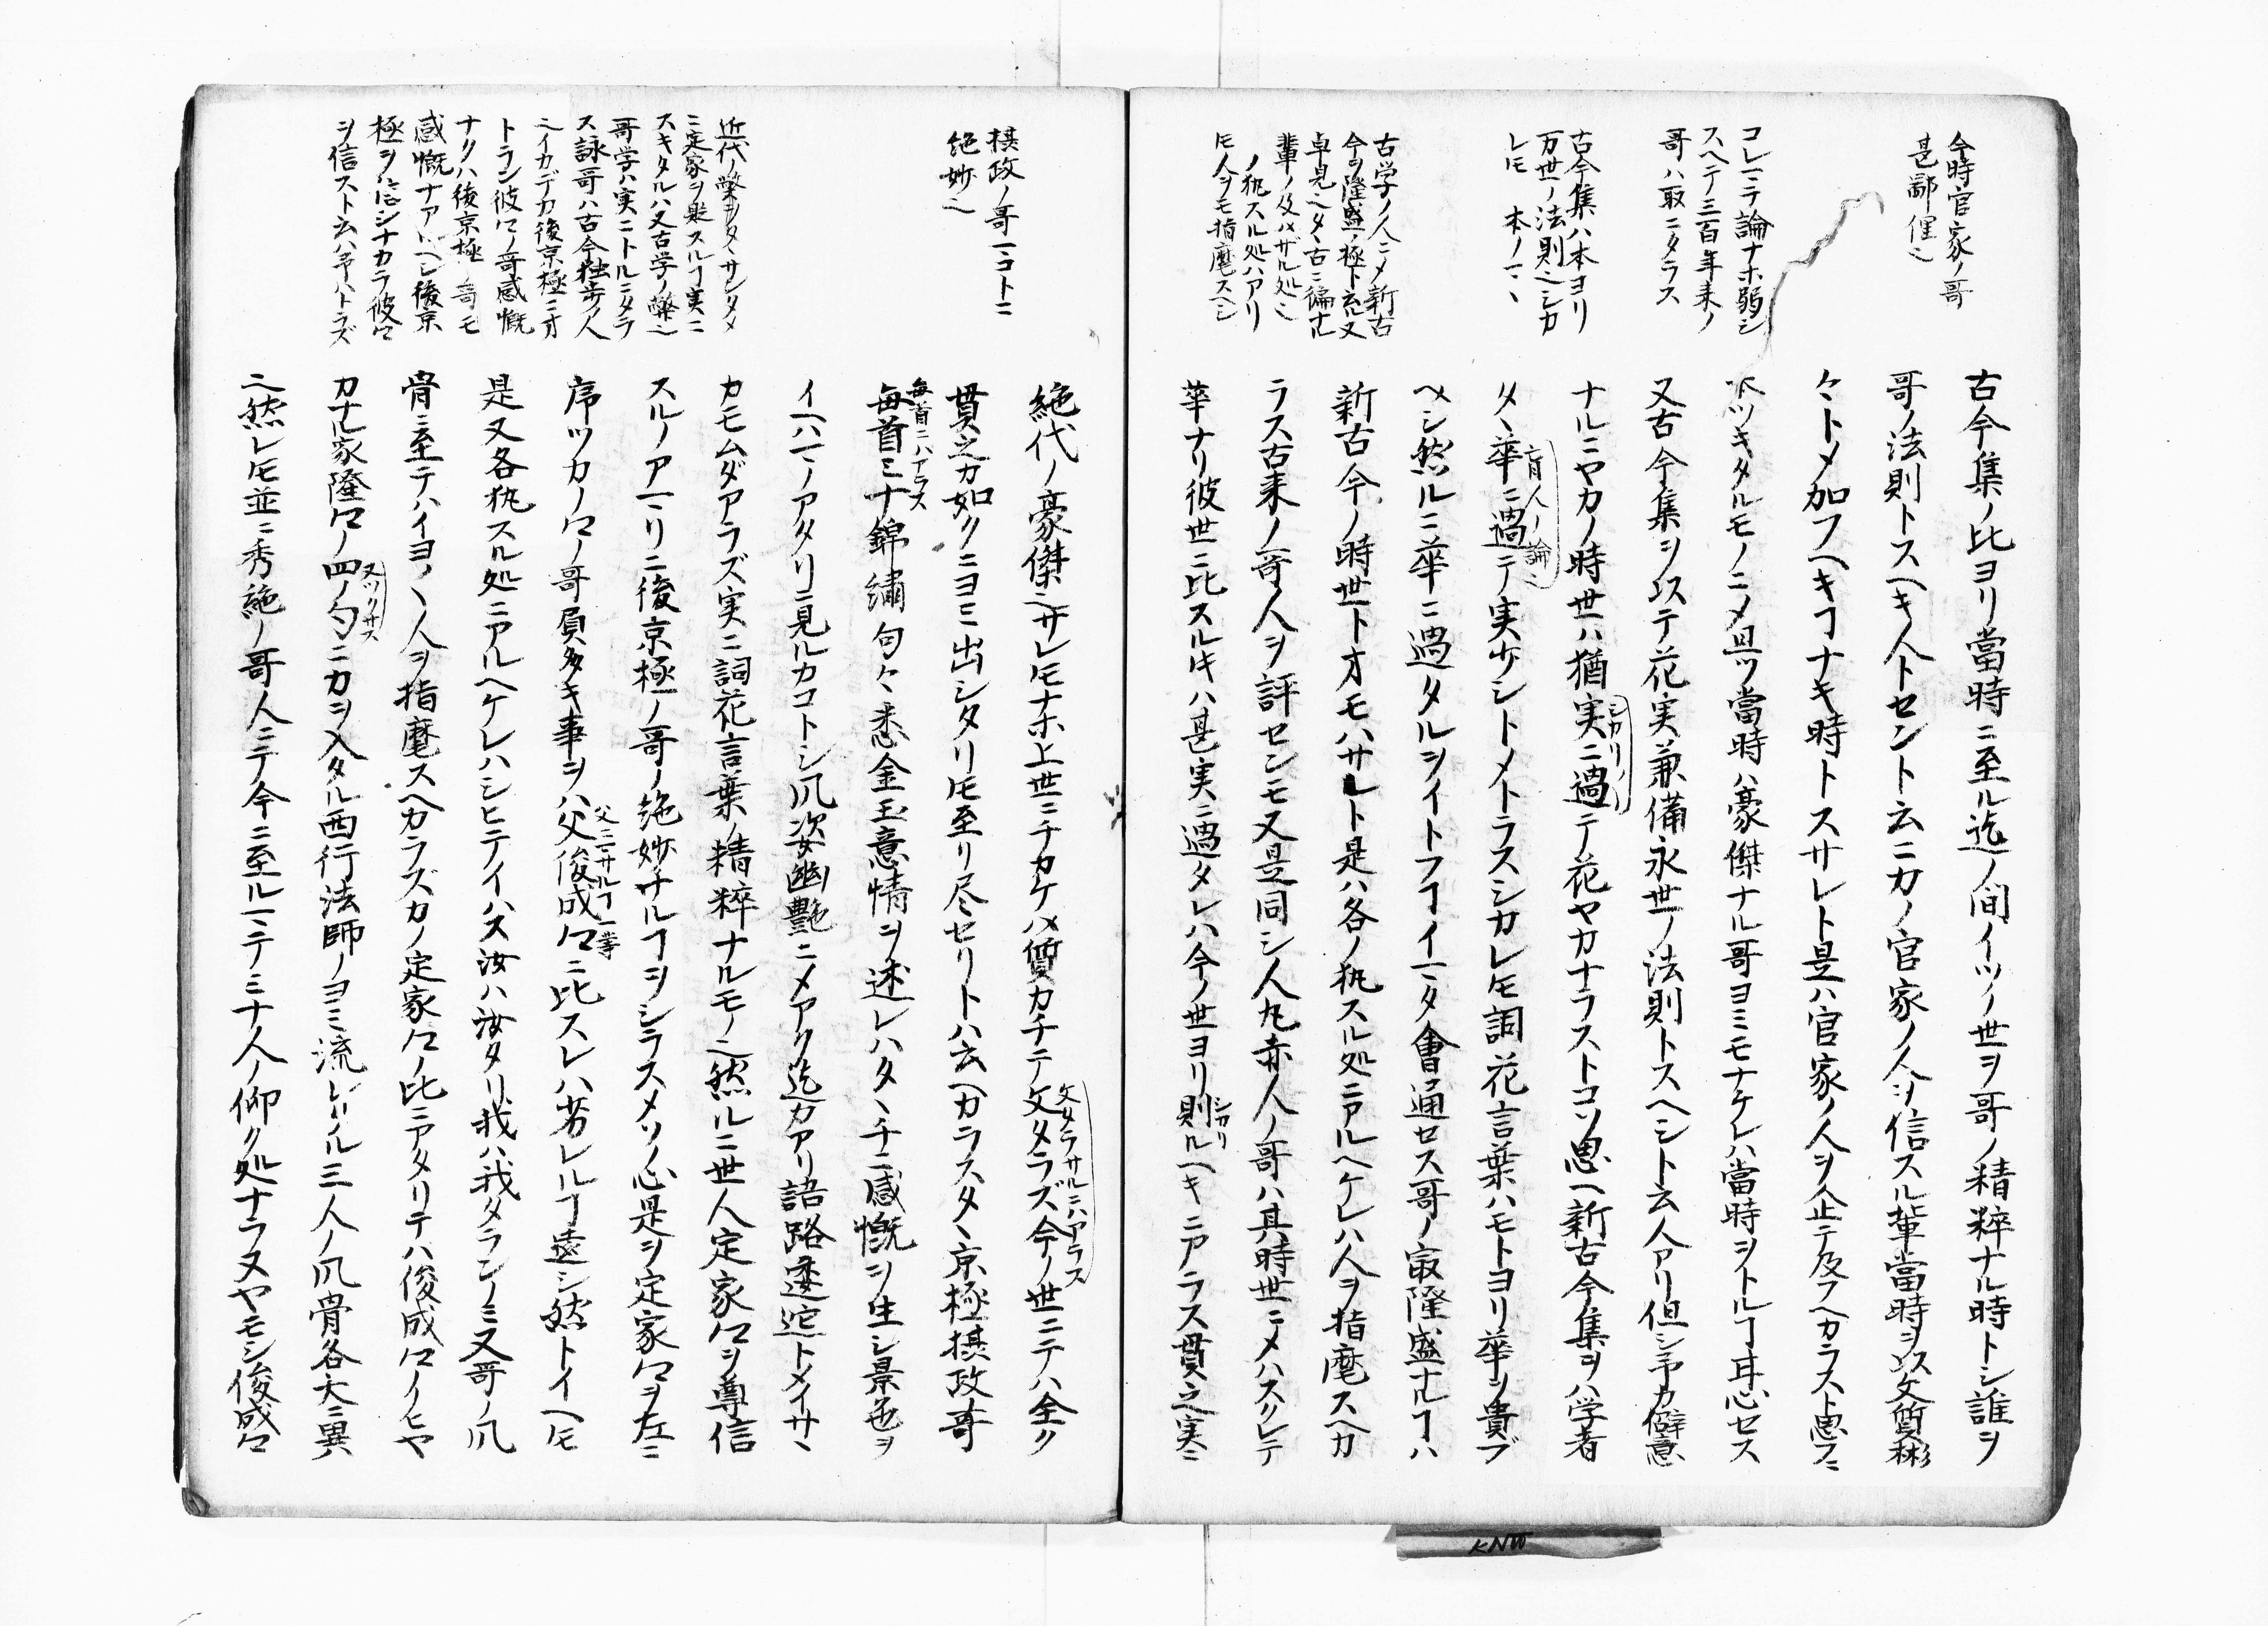 今時官家ノ哥
甚鄙俚也
コレニテ論ナホ弱シ
スヘテ三百年来ノ
哥ハ取ニタラス
古今集ハ本ヨリ
万世ノ法則也シカ
レ𪜈 本ノマヽ
古学ノ人ニ〆新古
今ヲ隆盛ノ極ト云ハ又
卓見也タヽ古ニ偏ナル
輩ノ及ハザル処也
ノ執スル処ハアリ
𪜈人ヲモ指麾スヘシ
古今集ノ比ヨリ當時ニ至ル迄ノ間イツノ世ヲ哥ノ精粹ナル時トシ誰ヲ
哥ノ法則トスヘキ人トセント云ニカノ官家ノ人ヲ信スル輩當時ヲ以文質彬
々トメ加フヘキヿナキ時トスサレト是ハ官家ノ人ヲ企テ及フヘカラスト思フニ
ツキタルモノニ〆且ツ當時ハ豪傑ナル哥ヨミモナケレハ當時ヲトルヿ甘心セス
又古今集ヲ以テ花実兼備永世ノ法則トスヘシト云人アリ但シ予カ僻意
ナルニヤカノ時世ハ猶実ニ過テ花ヤカナラストコソ思ヘ新古今集ヲハ学者
シカリノ
タヽ華ニ過テ実少シトメトラスシカレ𪜈詞花言葉ハモトヨリ華ヲ貴ブ
盲人ノ論也
ヘシ然ルニ華ニ過タルヲイトフヿイマタ會通セス哥ノ㝡隆盛ナルヿハ
新古今ノ時世トオモハサレト是ハ各ノ執スル処ニアルヘケレハ人ヲ指麾スヘカ
ラス古来ノ哥人ヲ評センモ又是同シ人丸赤人ノ哥ハ其時世ニ〆ハスクレテ
華ナリ彼世ニ比スルキハ甚実ニ過タレハ今ノ世ヨリ則ルヘキニアラス貫之実ニ
シカリ
摂政ノ哥マコトニ
絶妙也
近代ノ弊ヲタヽサンタメ
ニ定家ヲ貶スルヿ実ニ
スキタルハ又古学ノ弊也
哥学ハ実ニトルニタラ
ス詠哥ハ古今独歩ノ人
也イカデカ後京極ニオ
トラン彼卿ノ哥感慨
ナクハ後京極ノ哥モ
感慨ナアルヘシ後京
極ヲ信シナカラ彼卿
ヲ信スト云ハ予ハトラズ
絶代ノ豪傑也サレ𪜈ナホ上世ニチカケハ質カチテ文タラズ今ノ世ニテハ全ク
文タラサルニハアラス
貫之カ如クニヨミ出シタリ𪜈至リ尽セリトハ云ヘカラスタヽ京極摂政哥
毎首ミナ錦繍句々悉金玉意情ヲ述レハタヽチニ感慨ヲ生シ景色ヲ
毎首ニハアラス
イヘハマノアタリニ見ルカコトシ風姿幽艶ニ〆アク迄カアリ語路逶迤トメイサヽ
カモムダアラズ実ニ詞花言葉ノ精粹ナルモノ也然ルニ世人定家卿ヲ尊信
スルノアマリニ後京極ノ哥ノ絶妙ナルヿヲシラスメソノ心是ヲ定家卿ヲ左ニ
序ツカノ卿ノ哥員多キ事ヲハ父俊成卿ニ比スレハ劣レルヿ遠シ然トイヘ𪜈
父ニマサルヿ一等
是又各執スル処ニアルヘケレハシヒテイハス汝ハ汝タリ我ハ我タランノミ又哥ノ風
骨ニ至テハイヨヽヽ人ヲ指麾スヘカラズカノ定家卿ノ比ニアタリテハ俊成卿ノヒヤ
カナル家隆卿ノ四ノ句ニカヲ入タル西行法師ノヨミ流シタル三人ノ風骨各大ニ異
又ツクサス
也然レ𪜈並ニ秀絶ノ哥人ニテ今ニ至ルマテミナ人ノ仰ク処ナラヌヤモシ俊成卿